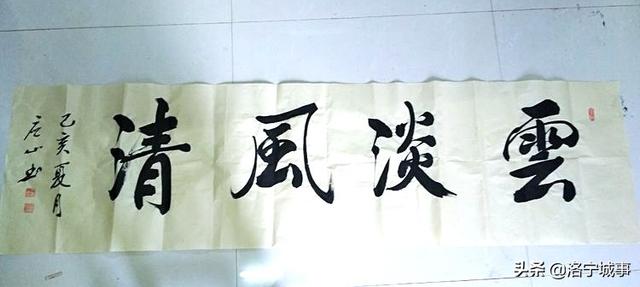 雲淡風清
己亥夏月
山书
头条 @洛宁城事